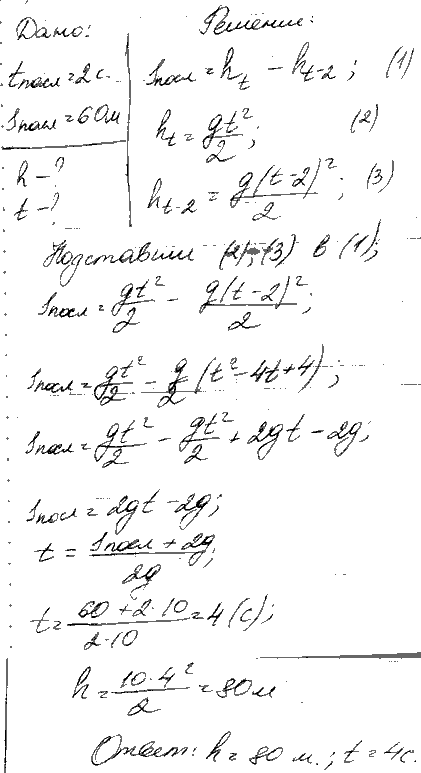 Дано:
Решение:
tпосл = 2 с.
Sпосл = 60 м
h - ?
t - ?
Sпосл = h_t - h_{t-2}; (1)
h_t = gt²/2; (2)
h_{t-2} = g(t-2)²/2; (3)
Подставим (2), (3) в (1);
Sпосл = gt²/2 - g(t-2)²/2;
Sпосл = gt²/2 - g/2 (t² - 4t + 4);
Sпосл = gt²/2 - gt²/2 + 2gt - 2g;
Sпосл = 2gt - 2g;
t = (Sпосл + 2g)/2g;
t = (60 + 2·10)/(2·10) = 4 (с);
h = 10·4²/2 = 80 м
Ответ: h = 80 м.; t = 4с.